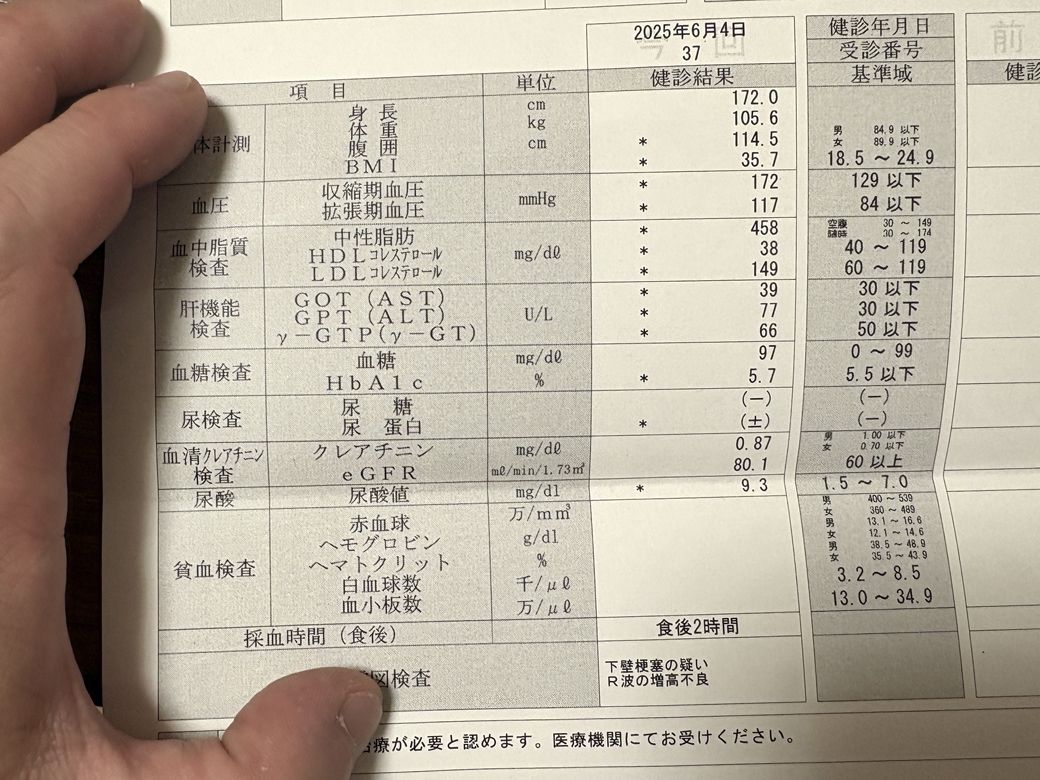 2025年6月4日 健診年月日
今回 前
37 受診番号
項目 単位 健診結果 基準域 健診
体計測 身長 cm 172.0
体重 kg 105.6
腹囲 cm * 114.5 男 84.9 以下
女 89.9 以下
BMI * 35.7 18.5 ～ 24.9
血圧 収縮期血圧 mmHg * 172 129 以下
拡張期血圧 * 117 84 以下
血中脂質検査 中性脂肪 mg/dℓ * 458 空腹 30 ～ 149
随時 30 ～ 174
HDLコレステロール * 38 40 ～ 119
LDLコレステロール * 149 60 ～ 119
肝機能検査 GOT(AST) U/L * 39 30 以下
GPT(ALT) * 77 30 以下
γ－GTP(γ－GT) * 66 50 以下
血糖検査 血糖 mg/dℓ 97 0 ～ 99
HbA1c % * 5.7 5.5 以下
尿検査 尿糖 (－) (－)
尿蛋白 * (±) (－)
血清クレアチニン検査 クレアチニン mg/dℓ 0.87 男 1.00 以下
女 0.70 以下
eGFR mℓ/min/1.73㎡ 80.1 60 以上
尿酸 尿酸値 mg/dl * 9.3 1.5 ～ 7.0
貧血検査 赤血球 万/mm³ 男 400 ～ 539
女 360 ～ 489
ヘモグロビン g/dl 男 13.1 ～ 16.6
女 12.1 ～ 14.6
ヘマトクリット % 男 38.5 ～ 48.9
女 35.5 ～ 43.9
白血球数 千/μℓ 3.2 ～ 8.5
血小板数 万/μℓ 13.0 ～ 34.9
採血時間(食後) 食後2時間
図検査 下壁梗塞の疑い
R波の増高不良
治療が必要と認めます。医療機関にてお受けください。